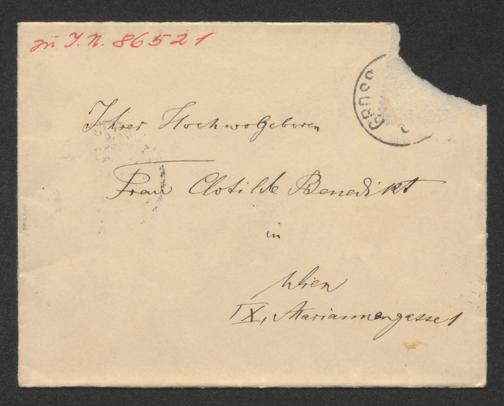 zu I.N. 86521
GROSS
Ihrer Hochwolgeboren
Frau Clotilde Benedikt
in
Wien
IX, Mariannengasse 1